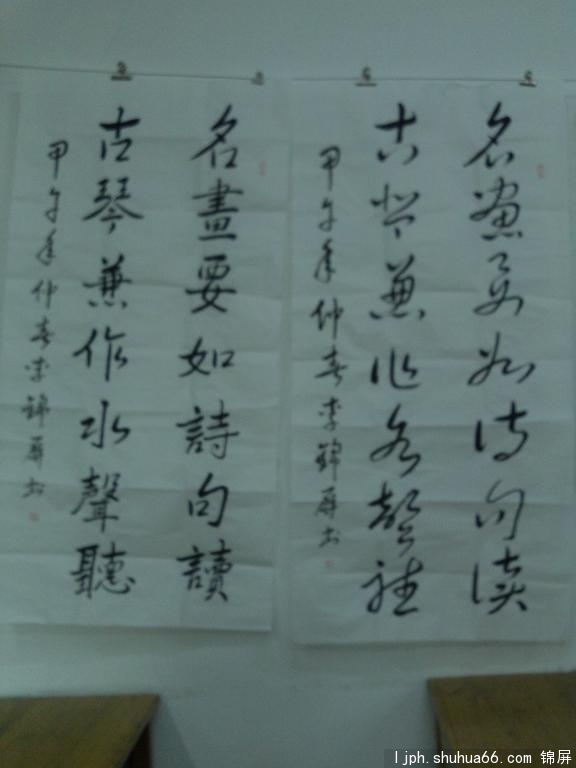 名畫要如詩句讀
古琴兼作水聲聽
甲午年仲春李錦屏书
名畫要如詩句讀
古琴兼作水聲聽
甲午年仲春李錦屏书
ljph.shuhua66.com 锦屏